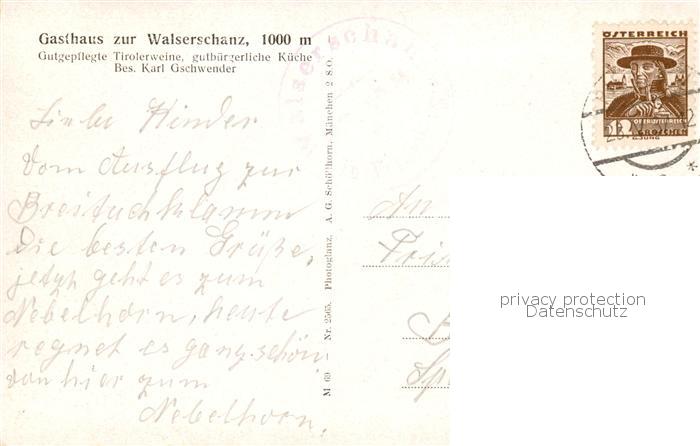 Gasthaus zur Walserschanz, 1000 m
Gutgepflegte Tirolerweine, gutbürgerliche Küche
Bes. Karl Gschwender
Liebe Kinder
Vom Ausflug zur
Breitachklamm
die besten Grüße,
jetzt geht es zum
Nebelhorn, heute
regnet es ganz schön
von hier zum
Nebelhorn.
M 69 Nr. 2565. Photoglanz. A. G. Schöllhorn, München 2 S.O.
Walserschan
ÖSTERREICH
12
OBERÖSTERREICH
GROSCHEN
An
privacy protection
Datenschutz